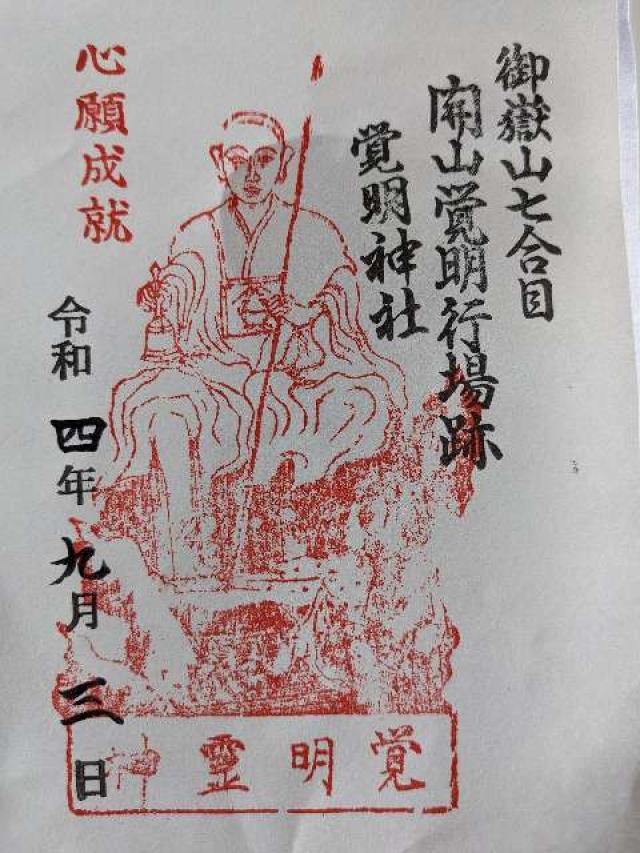 御嶽山七合目
開山覚明行場跡
覚明神社
心願成就
令和四年九月三日
覚明霊神